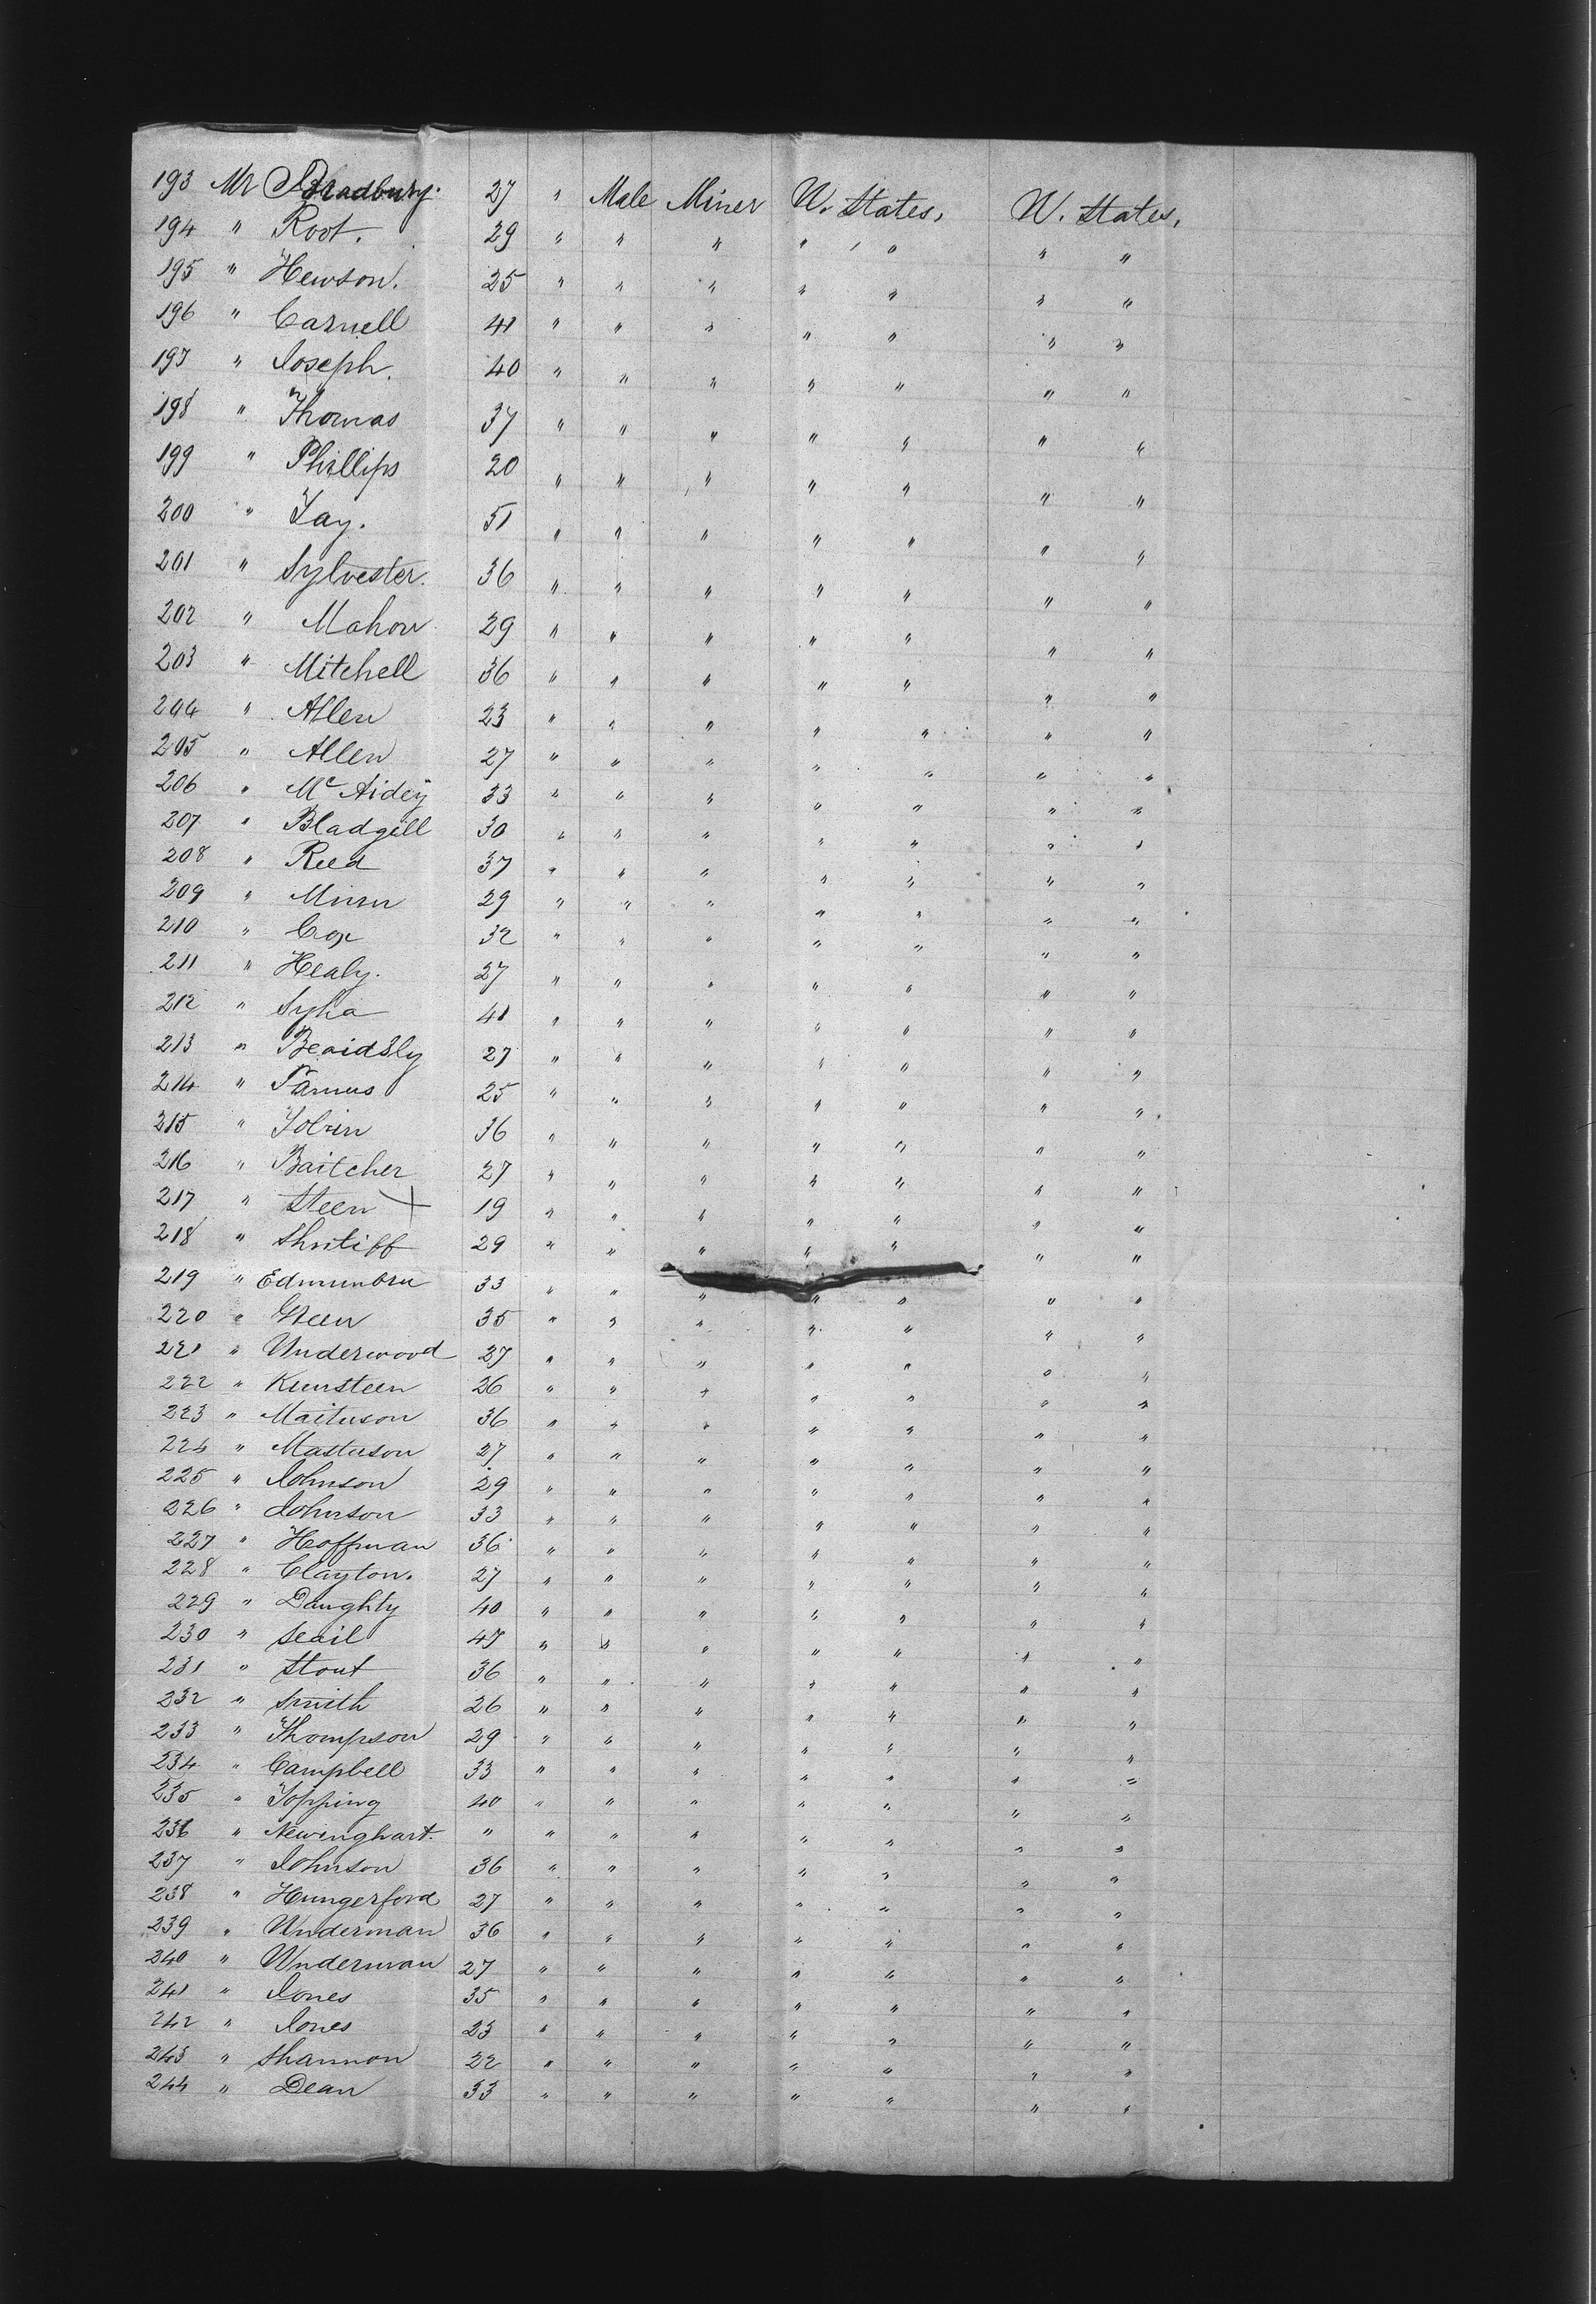 193 Mr Bradbury. 27 " Male Miner U. States, U. States,
194 " Root. 29 " " " " " " "
195 " Hewson. 25 " " " " " " "
196 " Carnell 41 " " " " " " "
197 " Joseph. 40 " " " " " " "
198 " Thomas 37 " " " " " " "
199 " Phillips 20 " " " " " " "
200 " Tay. 51 " " " " " " "
201 " Sylvester. 36 " " " " " " "
202 " Mahon 29 " " " " " " "
203 " Mitchell 36 " " " " " " "
204 " Allen 23 " " " " " " "
205 " Allen 27 " " " " " " "
206 " Mc Aidey 33 " " " " " " "
207 " Bladgell 30 " " " " " " "
208 " Reed 37 " " " " " " "
209 " Minn 29 " " " " " " "
210 " Cox 32 " " " " " " "
211 " Healy. 27 " " " " " " "
212 " Syha 41 " " " " " " "
213 " Beaidsly 27 " " " " " " "
214 " 25 " " " " " " "
215 " Tobin 36 " " " " " " "
216 " Baitcher 27 " " " " " " "
217 " Steen + 19 " " " " " " "
218 " 29 " " " " " " "
219 " 33 " " " " " " "
220 " Steen 35 " " " " " " "
221 " Underwood 27 " " " " " " "
222 " Kunsteen 26 " " " " " " "
223 " Maituson 36 " " " " " " "
224 " Mastuson 27 " " " " " " "
225 " Johnson 29 " " " " " " "
226 " Johnson 33 " " " " " " "
227 " Hoffman 36 " " " " " " "
228 " Clayton. 27 " " " " " " "
229 " Daughty 40 " " " " " " "
230 " Seail 47 " " " " " " "
231 " Stout 36 " " " " " " "
232 " Smith 26 " " " " " " "
233 " Thompson 29 " " " " " " "
234 " Campbell 33 " " " " " " "
235 " Topping 40 " " " " " " "
236 " Newinghart. " " " " " " " "
237 " Johnson 36 " " " " " " "
238 " Hungerford 27 " " " " " " "
239 " Underman 36 " " " " " " "
240 " Underman 27 " " " " " " "
241 " Jones 35 " " " " " " "
242 " Jones 23 " " " " " " "
243 " Shannon 22 " " " " " " "
244 " Dean 33 " " " " " " "